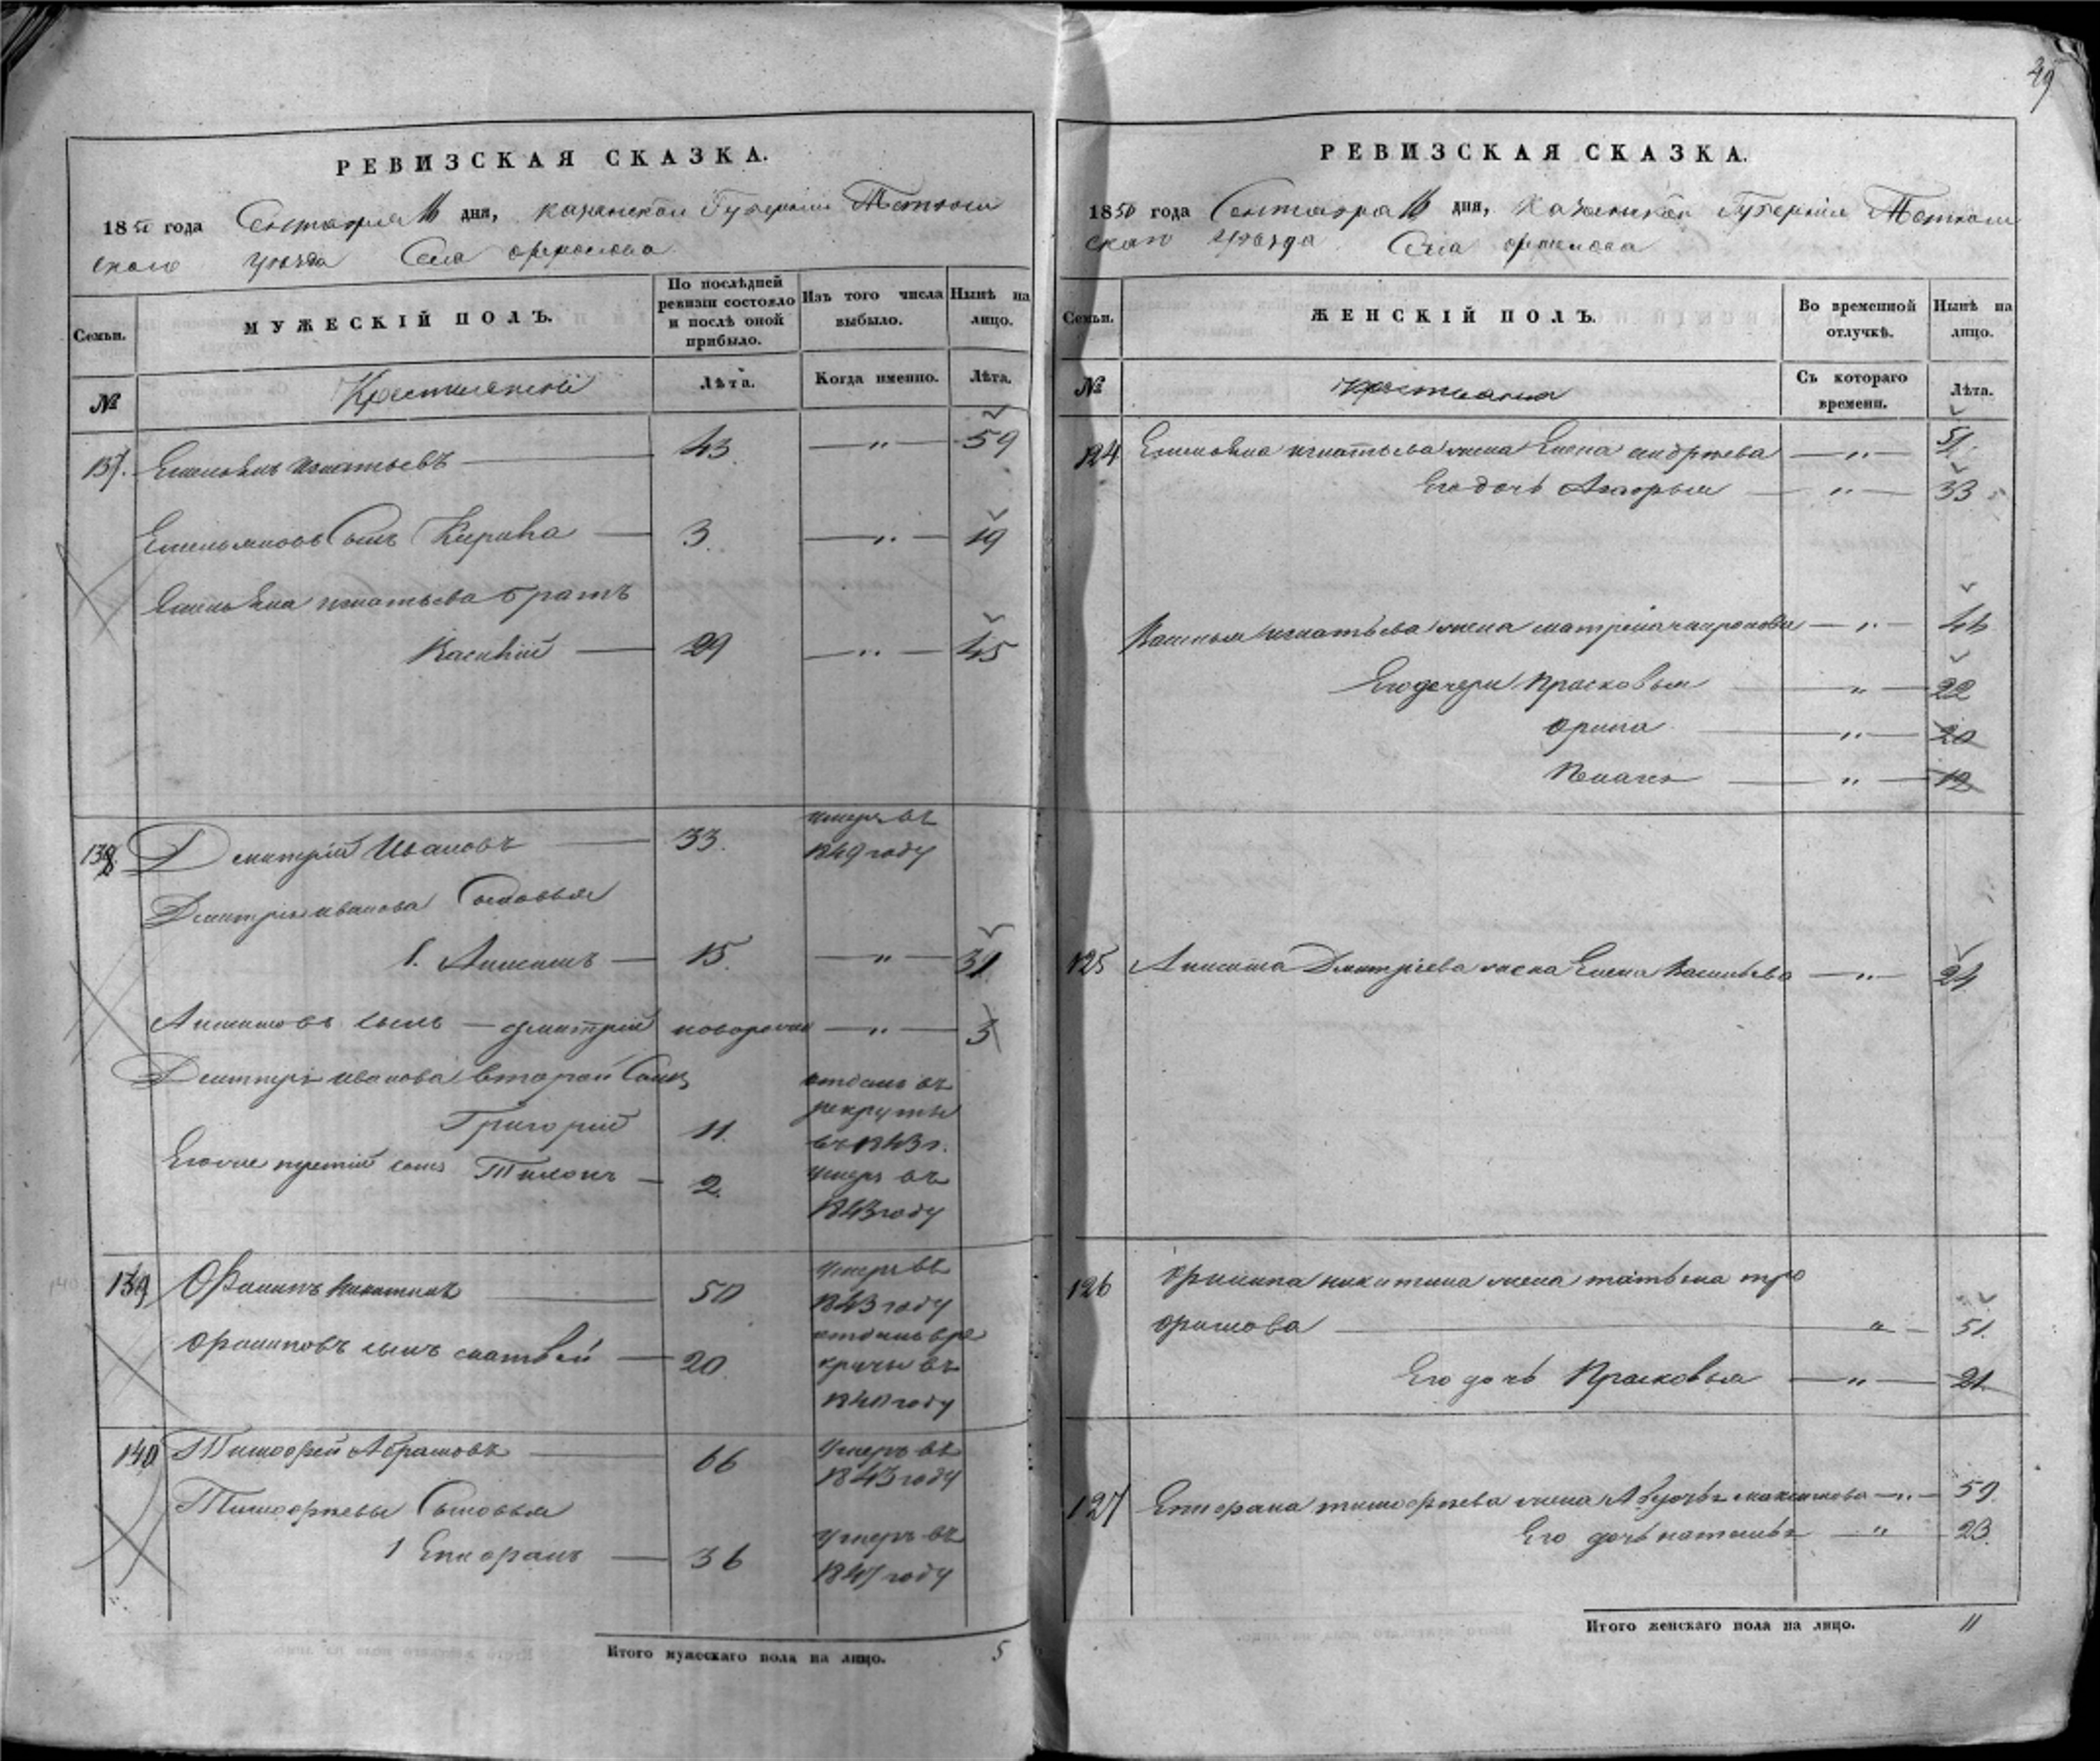 49
РЕВИЗСКАЯ СКАЗКА.
1850 года Сентября 16 дня, Казанской Губернии Тетюш
скаго уѣзда Села
Семьи.
МУЖЕСКІЙ ПОЛЪ.
По послѣдней ревизіи состояло и послѣ оной прибыло.
Изъ того числа выбыло.
Нынѣ на лицо.
№
Лѣта.
Когда именно.
Лѣта.
137. Емельянъ Игнатьевъ 43 — „ — 59
Емельяновъ Сынъ Кирила — 3. — „ — 19
Емельяна Игнатьева братъ
Василій — 29 — „ — 45
138. Дмитрій Ивановъ — 33. умеръ въ
1849 году
Дмитрія Иванова Сыновья
1. Анисимъ — 15. — „ — 31
Анисимовъ сынъ — Дмитрій новорожден — „ — 3
Дмитрія Иванова второй Сынъ
Григорій 11. отданъ въ
рекруты
въ 1843 г.
Его же третій сынъ Тихонъ — 2. умеръ въ
1843 году
139 Филипъ Никитинъ 50 умеръ въ
1843 году
Филиповъ сынъ Матвѣй — 20. отданъ въ ре
круты въ
1840 году
140 Тимофей Абрамовъ — 66 умеръ въ
1843 году
Тимофеевы Сыновья
1 — 36 умеръ въ
1847 году
Итого мужескаго пола на лицо. 5
РЕВИЗСКАЯ СКАЗКА.
1850 года Сентября 16 дня, Казанской Губерніи Тетюш
скаго Уѣзда Села
Семьи.
ЖЕНСКІЙ ПОЛЪ.
Во временной отлучкѣ.
Нынѣ на лицо.
№
Съ котораго времени.
Лѣта.
124 Емельяна Игнатьева жена Елена Андреева — „ — 51.
Его дочь — „ — 33
Василья Игнатьева жена Матрена — „ — 44
Его дочери Прасковья — „ — 22
Орина — „ — 20
Пелагея — „ — 12
125 Анисима Дмитріева жена Елена Васильева — „ — 24
126 Филипа Никитина жена Татьяна Тро
фимова — „ — 51.
Его дочь Прасковья — „ — 21.
127 Тимофеева жена Авдотья Максимова — „ — 59.
Его дочь Наталья — „ — 23.
Итого женскаго пола на лицо. 11